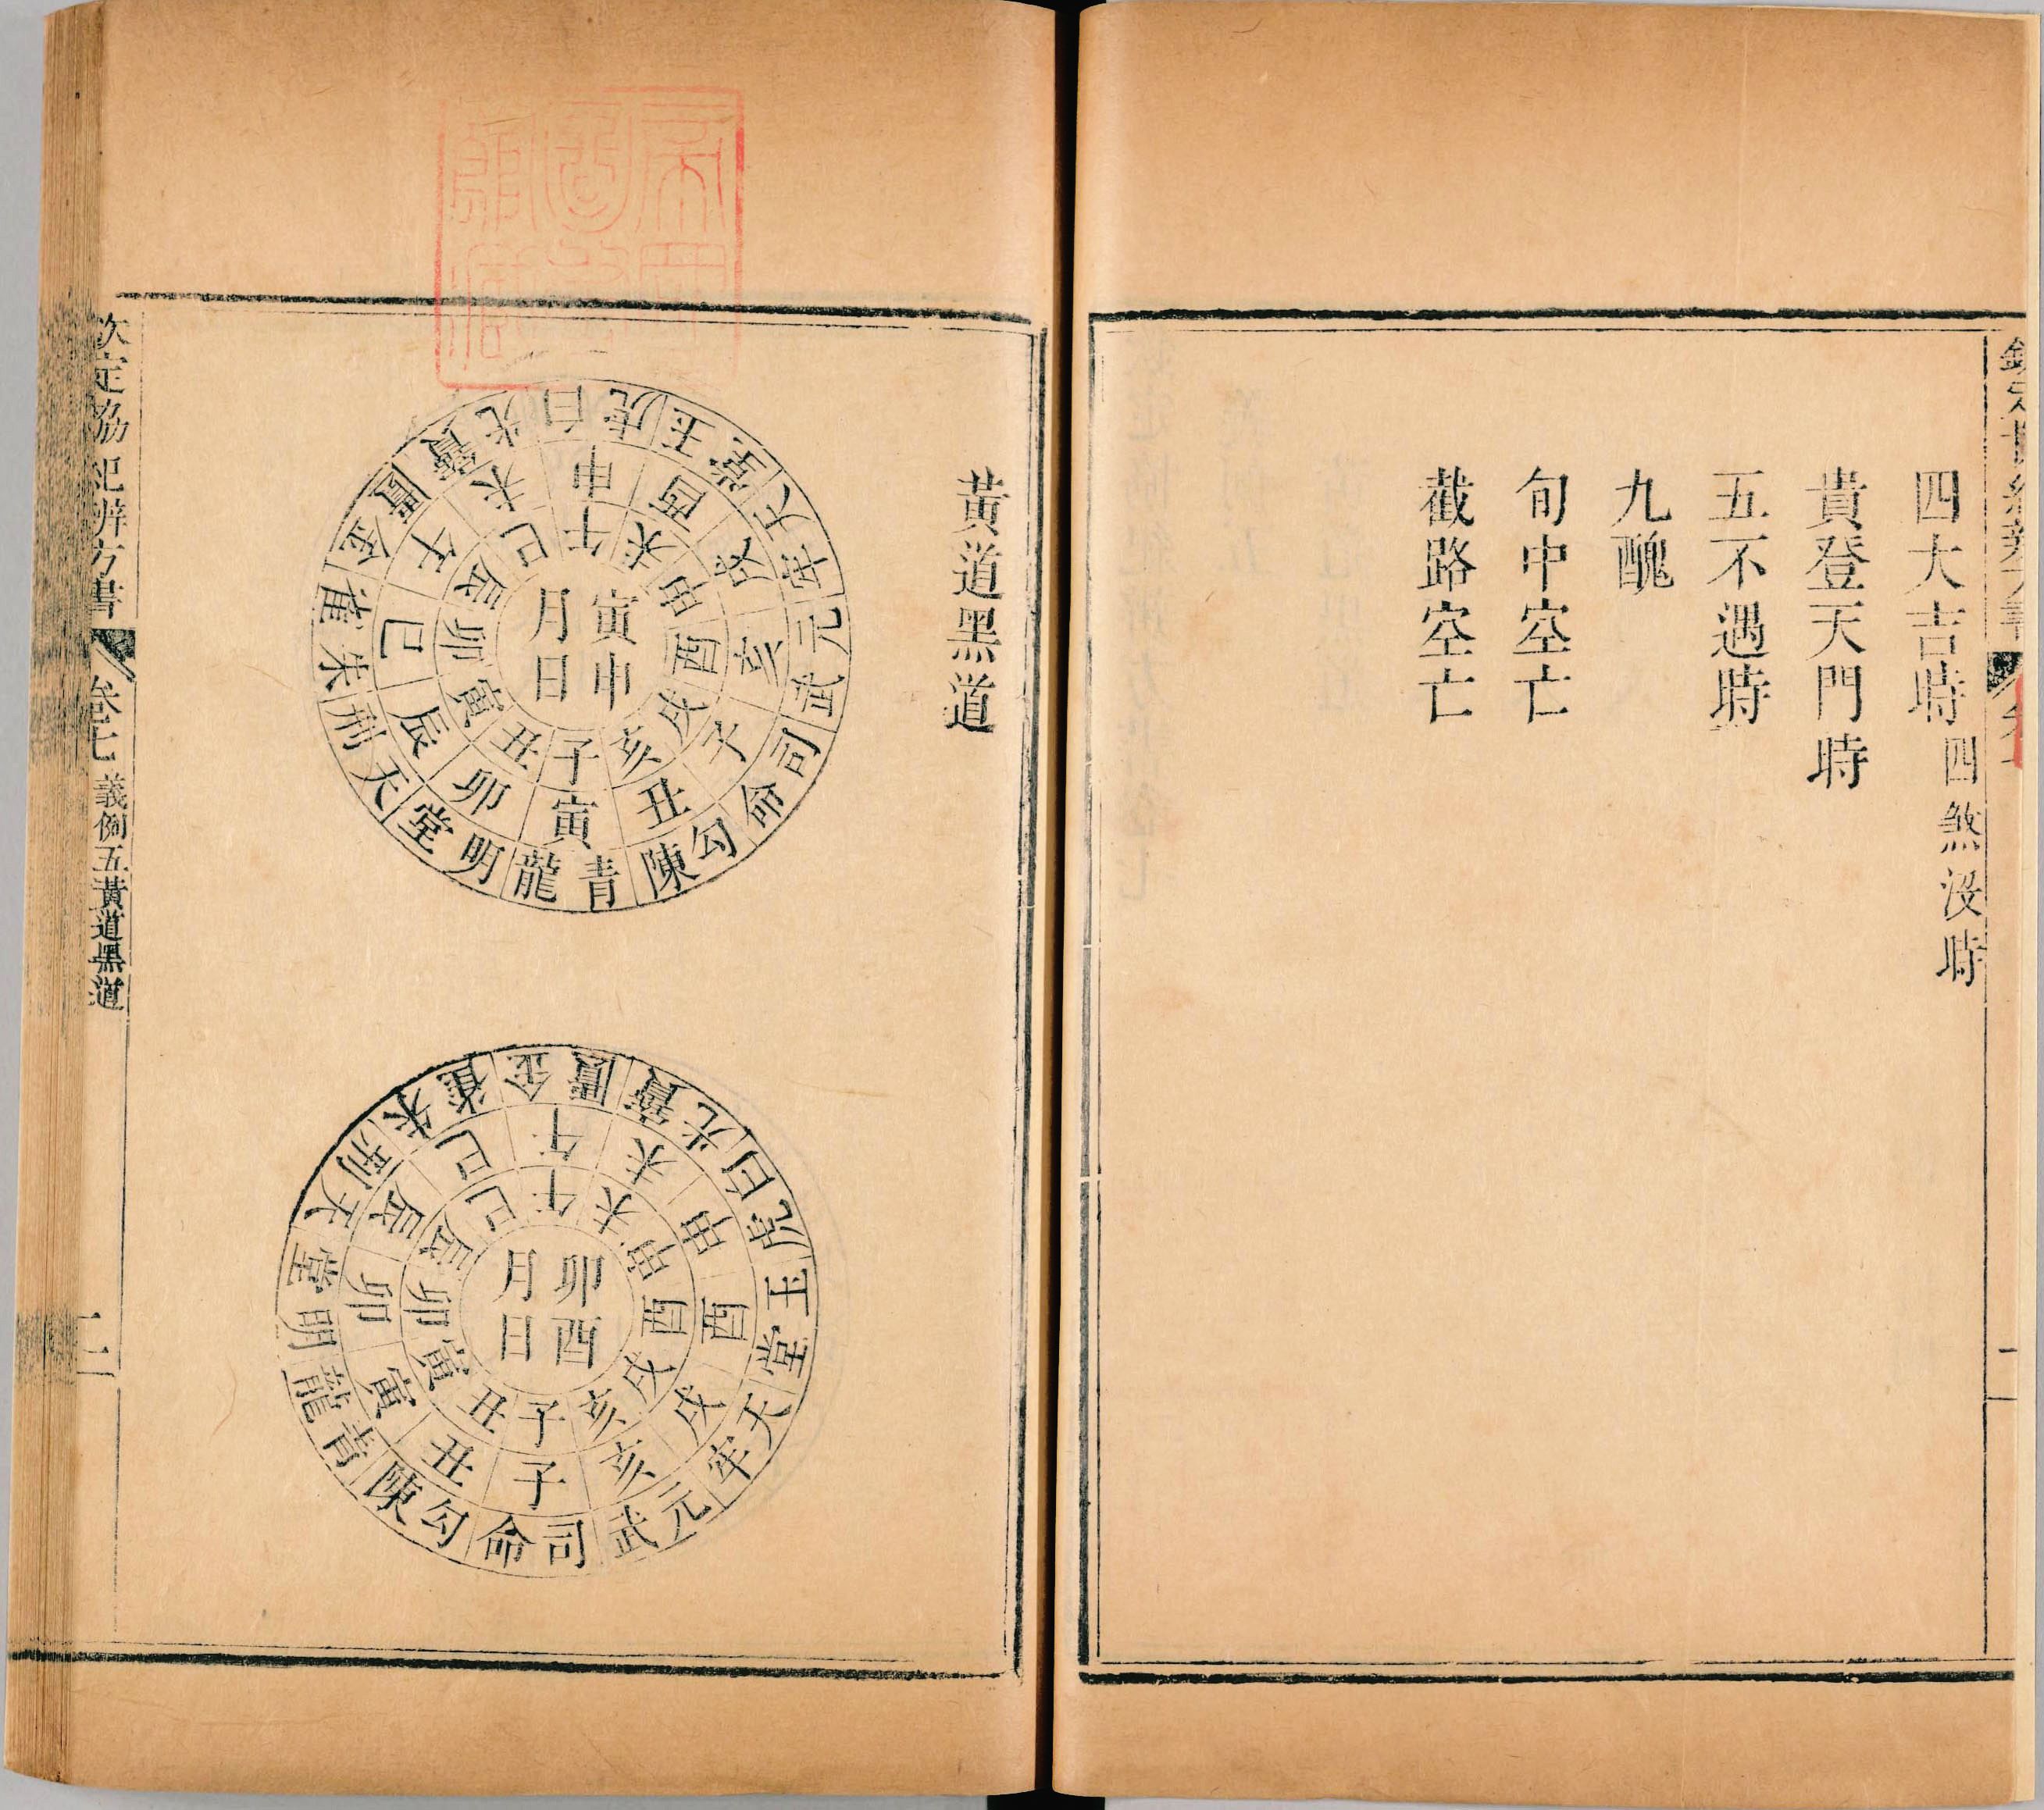 四大吉時四煞沒時
貴登天門時
五不遇時
九醜
旬中空亡
截路空亡
黃道黑道
寅申
月日
子丑寅卯辰巳午未申酉戌亥
寅卯辰巳午未申酉戌亥子丑
青龍
明堂
天刑
朱雀
金匱
寶光
白虎
玉堂
天牢
元武
司命
勾陳
卯酉
月日
子丑寅卯辰巳午未申酉戌亥
子丑寅卯辰巳午未申酉戌亥
司命
勾陳
青龍
明堂
天刑
朱雀
金匱
寶光
白虎
玉堂
天牢
元武
欽定協紀辨方書 卷七 義例五黃道黑道